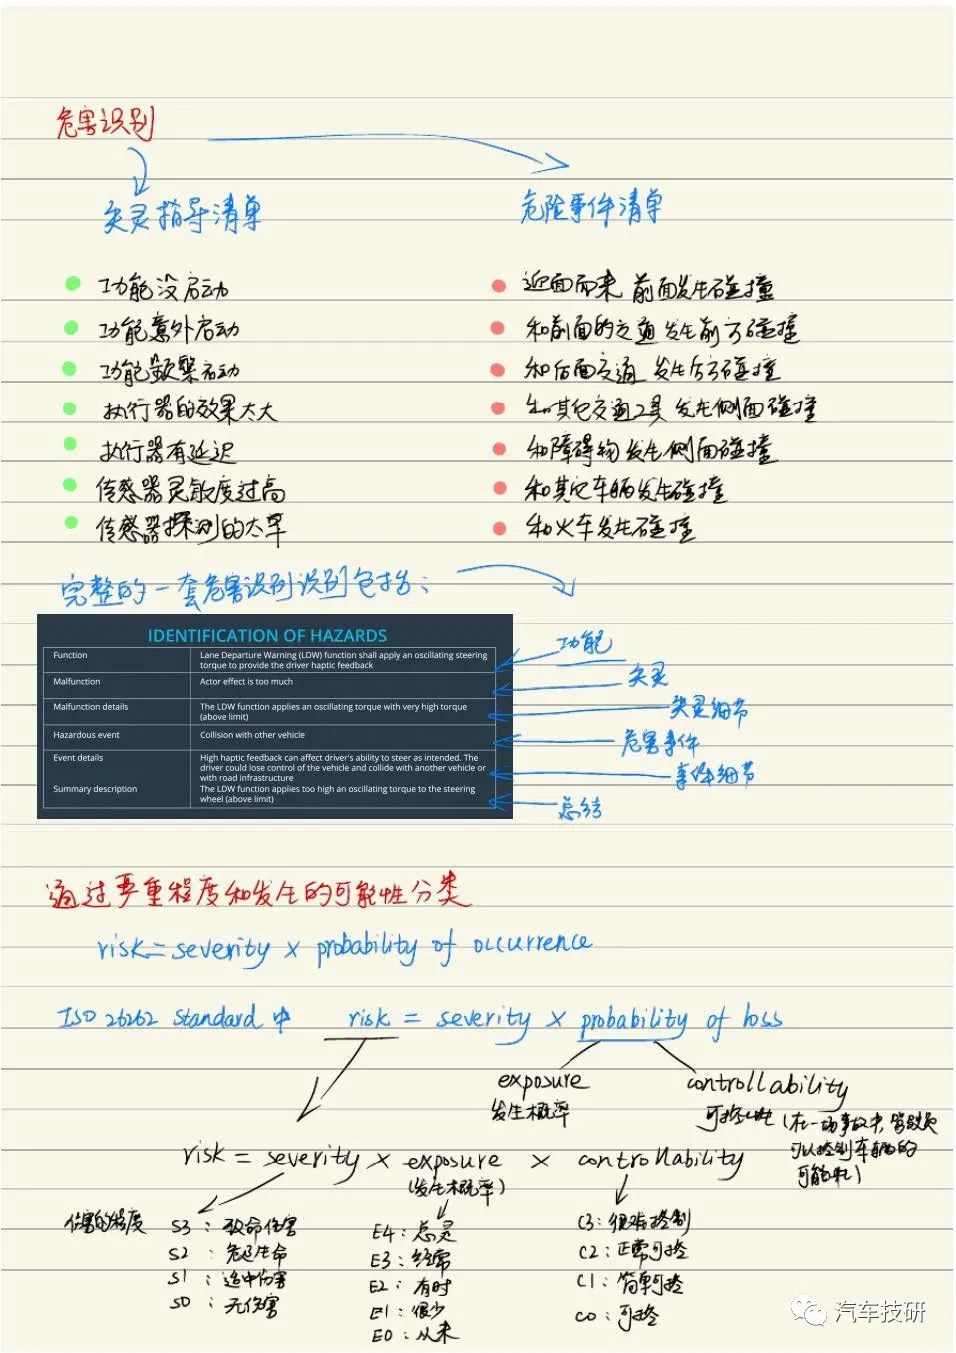 危害识别
失灵指导清单
危险事件清单
功能没启动
功能意外启动
功能频繁启动
执行器的效果太大
执行器有延迟
传感器灵敏度过高
传感器探测的太早
近面而来 前面发生碰撞
和前面的交通发生前方碰撞
和后面交通 发生后方碰撞
和其它交通工具 发生侧面碰撞
和障碍物发生侧面碰撞
和其它车辆发生碰撞
和火车发生碰撞
完整的一套危害识别识别包括:
IDENTIFICATION OF HAZARDS
Function
Lane Departure Warning (LDW) function shall apply an oscillating steering
torque to provide the driver haptic feedback
功能
Malfunction
Actor effect is too much
失灵
Malfunction details
The LDW function applies an oscillating torque with very high torque
(above limit)
失灵细节
Hazardous event
Collision with other vehicle
危害事件
Event details
High haptic feedback can affect driver's ability to steer as intended. The
driver could lose control of the vehicle and collide with another vehicle or
with road infrastructure
事件细节
Summary description
The LDW function applies too high an oscillating torque to the steering
wheel (above limit)
总结
通过严重程度和发生的可能性分类
risk = severity × probability of occurrence
ISO 26262 Standard 中 risk = severity × probability of loss
exposure
发生概率
controllability
可控性 (在一场事故中,驾驶员
可以控制车辆的
可能性)
risk = severity × exposure × controllability
(发生概率)
伤害的程度
S3: 致命伤害
S2: 危及生命
S1: 适中伤害
S0: 无伤害
E4: 总灵
E3: 经常
E2: 有时
E1: 很少
E0: 从未
C3: 很难控制
C2: 正常可控
C1: 简单可控
C0: 可控
汽车技研